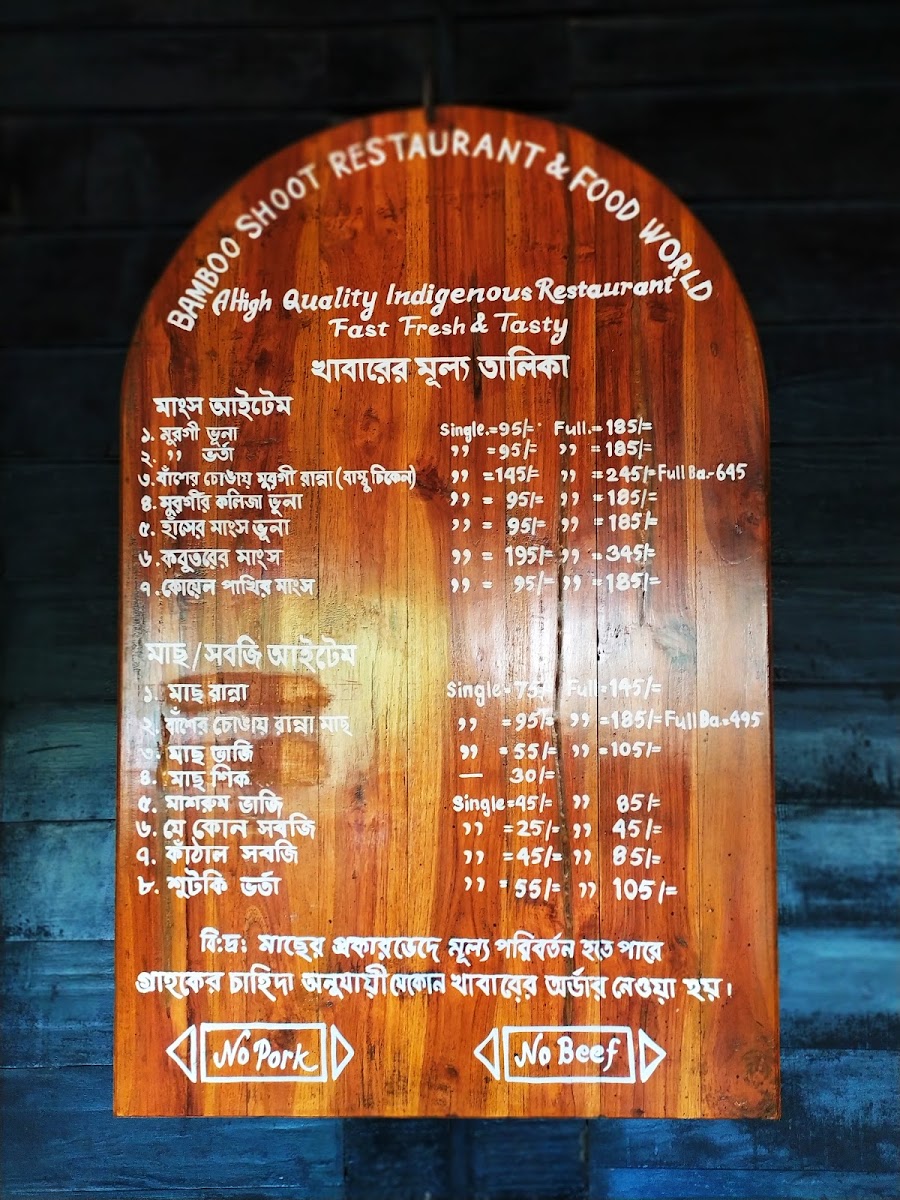 BAMBOO SHOOT RESTAURANT & FOOD WORLD
A High Quality Indigenous Restaurant
Fast Fresh & Tasty
খাবারের মূল্য তালিকা
মাংস আইটেম
১. মুরগী ভূনা Single.=95/= Full.=185/=
২. ,, ভর্তা ,, =95/= ,, =185/=
৩. বাঁশের চোঙায় মুরগী রান্না (বাম্বু চিকেন) ,, =145/= ,, =245/= Full Ba.-645
৪. মুরগীর কলিজা ভূনা ,, = 95/= ,, =185/=
৫. হাঁসের মাংস ভূনা ,, = 95/= ,, =185/=
৬. কবুতরের মাংস ,, = 195/= ,, =345/=
৭. কোয়েল পাখির মাংস ,, = 95/= ,, =185/=
মাছ/সবজি আইটেম
১. মাছ রান্না Single=75/= Full=145/=
২. বাঁশের চোঙায় রান্না মাছ ,, =95/= ,, =185/= Full Ba.=495
৩. মাছ ভাজি ,, =55/= ,, =105/=
৪. মাছ শিক — 30/=
৫. মাশরুম ভাজি Single=45/= ,, 85/=
৬. যে কোন সবজি ,, =25/= ,, 45/=
৭. কাঁঠাল সবজি ,, =45/= ,, 85/=
৮. শুটকি ভর্তা ,, =55/= ,, 105/=
বি:দ্র: মাছের প্রকারভেদে মূল্য পরিবর্তন হতে পারে
গ্রাহকের চাহিদা অনুযায়ী যেকোন খাবারের অর্ডার নেওয়া হয়।
No Pork
No Beef